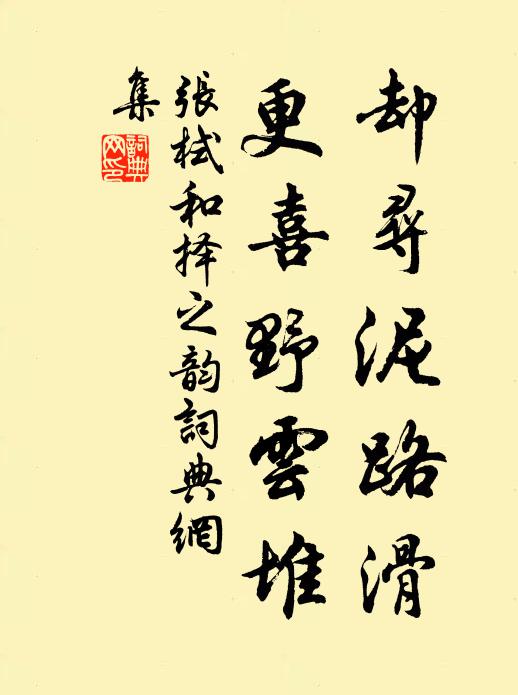 却尋泥路滑
更喜野雲堆
張栻和择之韵詞典網
集
詞典
网印